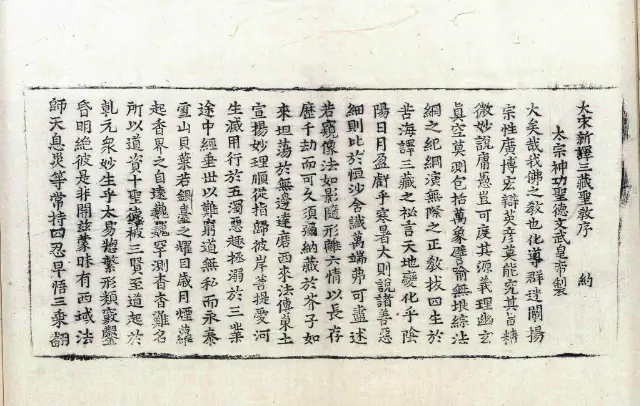 大宋新譯三藏聖敎序 約
太宗神功聖德文武皇帝製
大矣哉我佛之敎也化導群迷闡揚
宗性廣博宏辯英彥莫能究其旨精
微妙說庸愚豈可度其源義理幽玄
眞空莫測包括萬象譬喻無垠綜法
網之紀綱演無際之正敎拔四生於
苦海譯三藏之秘言天地變化乎陰
陽日月盈虧乎寒暑大則說諸善惡
細則比於恒沙含識萬端弗可盡述
若窺像法如影隨形離六情以長存
歷千劫而可久須彌納藏於芥子如
來坦蕩於無邊達磨西來法傳東土
宣揚妙理順從指歸彼岸菩提愛河
生滅用行於五濁惡趣拯溺於三業
途中經垂世以難窮道無私而永泰
雪山貝葉若銀臺之耀目歲月煙蘿
起香界之自遠巍巍罕測杳杳難名
所以道資十聖德被三賢至道起於
乹元衆妙生乎太易揔繁形類竅鑿
昏明絶彼是非開茲蒙昧有西域法
師天息災等常持四忍早悟三乘翻